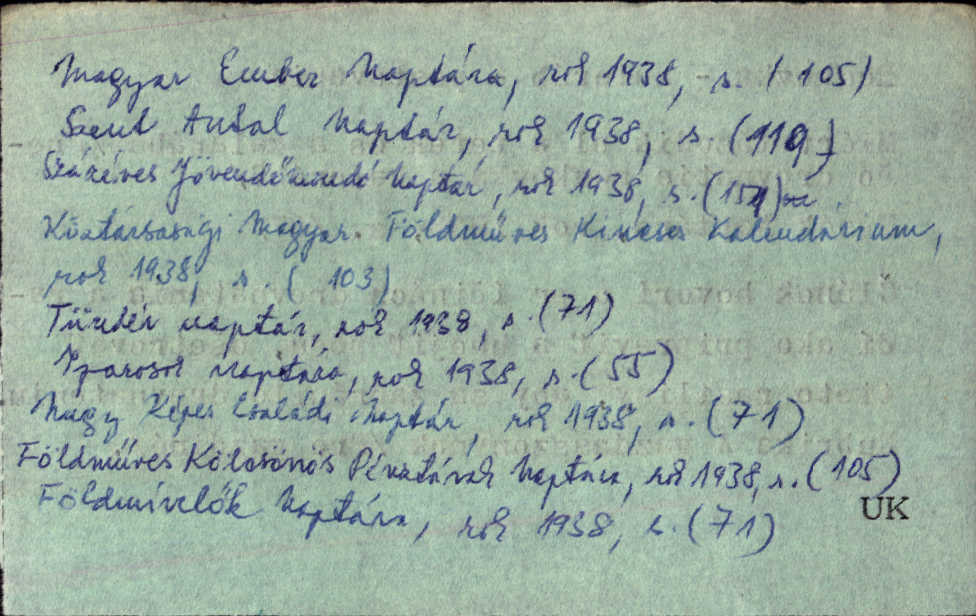 Magyar Ember Naptára, rok 1938, s. (105)
Szent Antal Naptár, rok 1938, s. (119)
Százéves Jövendőmondó Naptár, rok 1938, s. (151)
Köztársasági Magyar Földmüves Kincses Kalendárium,
rok 1938, s. (103)
Tündér naptár, rok 1938, s. (71)
Iparosok Naptára, rok 1938, s. (55)
Nagy Képes Családi Naptár, rok 1938, s. (71)
Földműves Kölcsönös Pénztárak Naptára, rok 1938, s. (105)
Földmívelők Naptára, rok 1938, s. (71)
UK